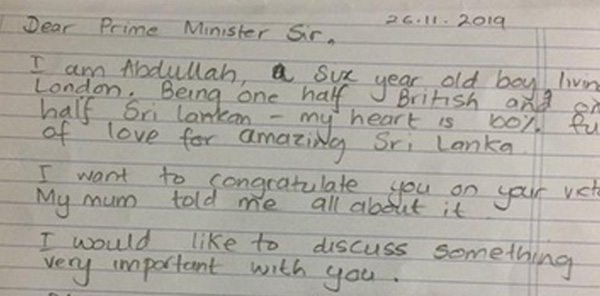 26.11.2019
Dear Prime Minister Sir,
I am Abdullah, a six year old boy livin
London. Being one half British and on
half Sri Lankan – my heart is 100% fu
of love for amazing Sri Lanka
I want to congratulate you on your vict
My mum told me all about it
I would like to discuss something
very important with you.